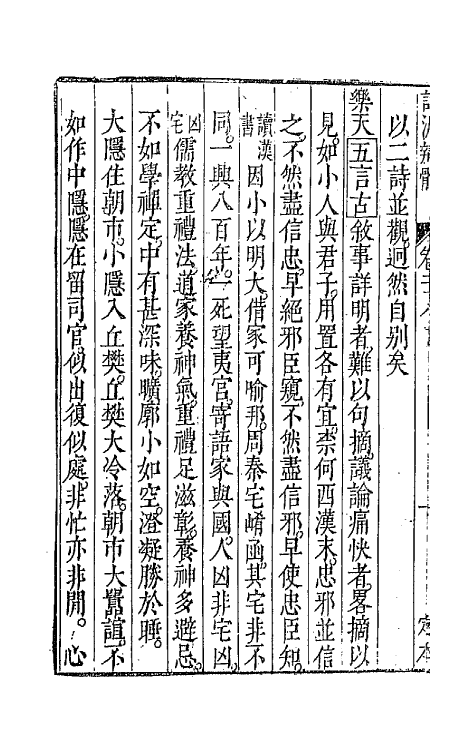 以二詩並觀迥然自别矣
樂天五言古敘事詳明者難以句摘議論痛快者畧摘以
見如小人與君子用置各有宜柰何西漢末忠邪並信
之不然盡信忠早絕邪臣窺不然盡信邪早使忠臣知
讀漢書因小以明大借家可喻邦周秦宅崤函其宅非不
同一興八百年一死望夷宫寄語家與國人凶非宅凶
凶宅儒教重禮法道家養神氣重禮足滋彰養神多避忌
不如學禪定中有甚深味曠廓小如空澄凝勝於睡
大隱住朝市小隱入丘樊丘樊大冷落朝市大囂諠不
如作中隱隱在留司官似出復似處非忙亦非閒心